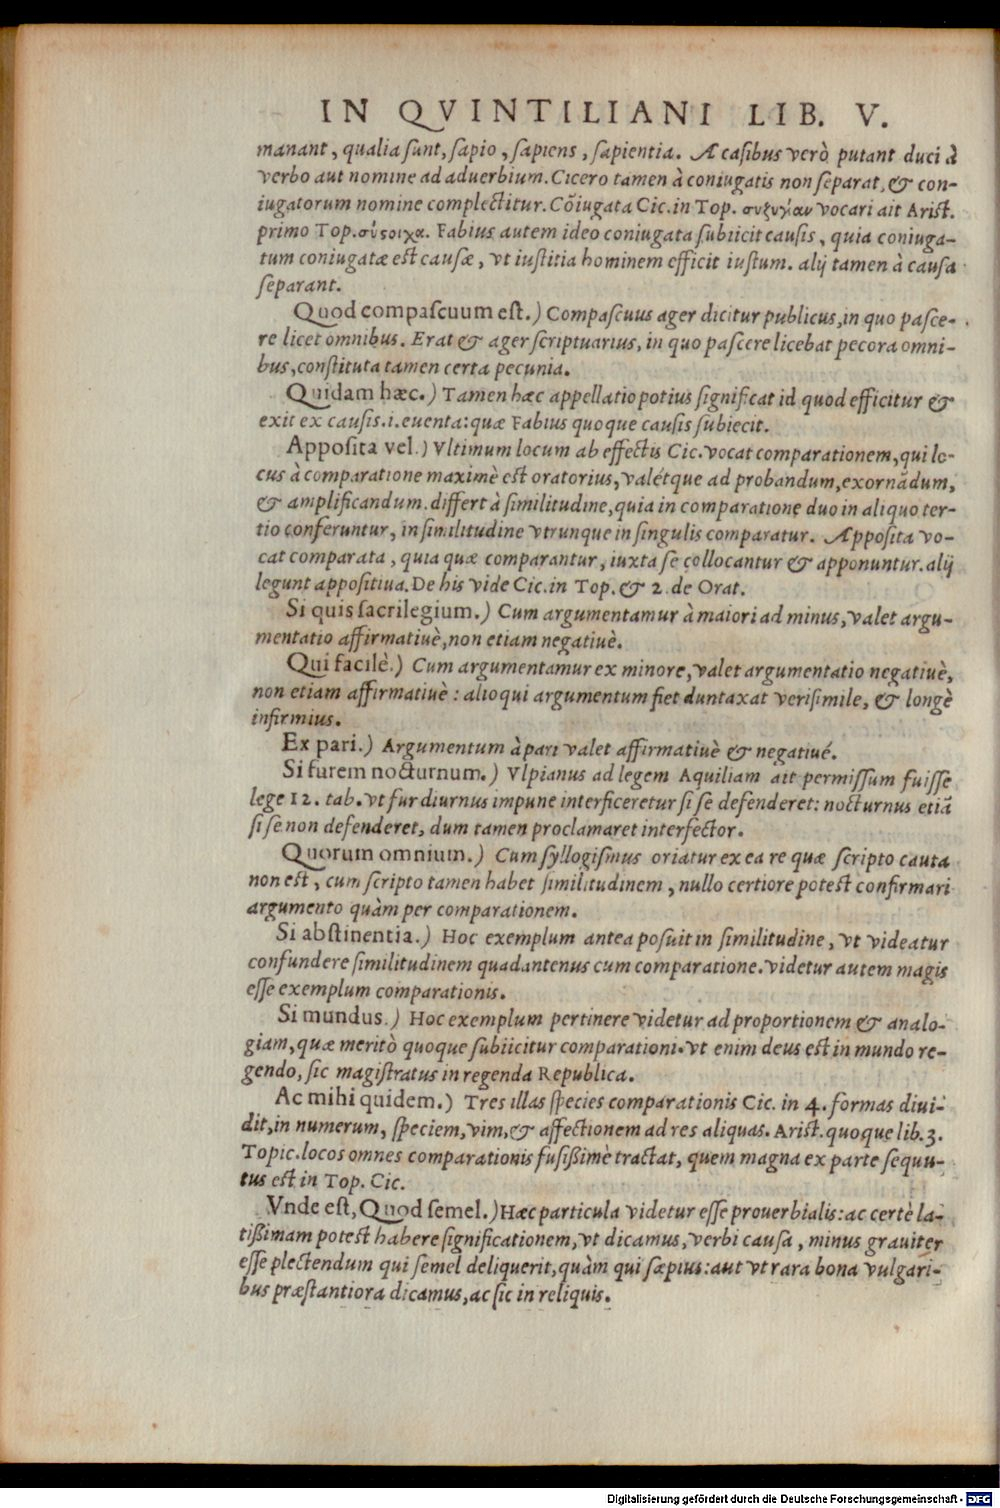 IN QVINTILIANI LIB. V.
manant, qualia sunt, sapio, sapiens, sapientia. A casibus verò putant duci à
verbo aut nomine ad aduerbium. Cicero tamen à coniugatis non separat, & con-
iugatorum nomine complectitur. Cōiugata Cic. in Top. συζυγίαν vocari ait Arist.
primo Top. σύςοιχα. Fabius autem ideo coniugata subiicit causis, quia coniuga-
tum coniugatæ est causæ, vt iustitia hominem efficit iustum. alij tamen à causa
separant.
Quod compascuum est.) Compascuus ager dicitur publicus, in quo pasce-
re licet omnibus. Erat & ager scriptuarius, in quo pascere licebat pecora omni-
bus, constituta tamen certa pecunia.
Quidam hæc.) Tamen hæc appellatio potius significat id quod efficitur &
exit ex causis .i. euenta: quæ Fabius quoque causis subiecit.
Apposita vel.) Vltimum locum ab effectis Cic. vocat comparationem, qui lo-
cus à comparatione maximè est oratorius, valétque ad probandum, exornādum,
& amplificandum. differt à similitudine, quia in comparatione duo in aliquo ter-
tio conferuntur, in similitudine vtrunque in singulis comparatur. Apposita vo-
cat comparata, quia quæ comparantur, iuxta se collocantur & apponuntur. alij
legunt appositiua. De his vide Cic. in Top. & 2. de Orat.
Si quis sacrilegium.) Cum argumentamur à maiori ad minus, valet argu-
mentatio affirmatiuè, non etiam negatiuè.
Qui facilè.) Cum argumentamur ex minore, valet argumentatio negatiuè,
non etiam affirmatiuè : alioqui argumentum fiet duntaxat verisimile, & longè
infirmius.
Ex pari.) Argumentum à pari valet affirmatiuè & negatiué.
Si furem nocturnum.) Vlpianus ad legem Aquiliam ait permissum fuisse
lege 12. tab. vt fur diurnus impune interficeretur si se defenderet: nocturnus etiā
si se non defenderet, dum tamen proclamaret interfector.
Quorum omnium.) Cum syllogismus oriatur ex ea re quæ scripto cauta
non est, cum scripto tamen habet similitudinem, nullo certiore potest confirmari
argumento quàm per comparationem.
Si abstinentia.) Hoc exemplum antea posuit in similitudine, vt videatur
confundere similitudinem quadantenus cum comparatione. videtur autem magis
esse exemplum comparationis.
Si mundus.) Hoc exemplum pertinere videtur ad proportionem & analo-
giam, quæ meritò quoque subiicitur comparationi. vt enim deus est in mundo re-
gendo, sic magistratus in regenda Republica.
Ac mihi quidem.) Tres illas species comparationis Cic. in 4. formas diui-
dit, in numerum, speciem, vim, & affectionem ad res aliquas. Arist. quoque lib. 3.
Topic. locos omnes comparationis fusißimè tractat, quem magna ex parte sequu-
tus est in Top. Cic.
Vnde est, Quod semel.) Hæc particula videtur esse prouerbialis: ac certè la-
tißimam potest habere significationem, vt dicamus, verbi causa, minus grauiter
esse plectendum qui semel deliquerit, quàm qui sæpius: aut vt rara bona vulgari-
bus præstantiora dicamus, ac sic in reliquis.
Digitalisierung gefördert durch die Deutsche Forschungsgemeinschaft - DFG